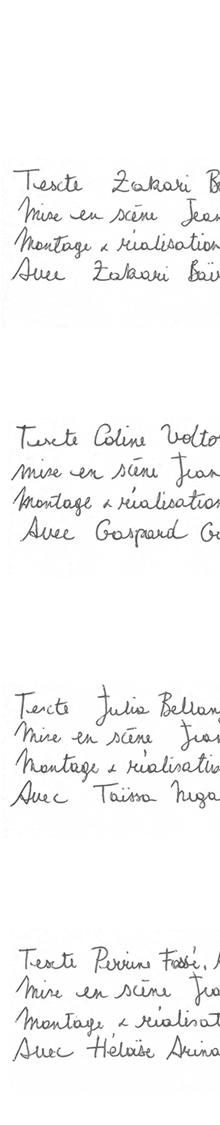 Texte Zakari B
Mise en scène Jean
Montage & réalisation
Avec Zakari Baï
Texte Coline Volto
Mise en scène Jean
Montage & réalisation
Avec Gaspard G
Texte Julia Bellan
Mise en scène Jean
Montage & réalisatio
Avec Taïssa
Texte Perrine Fossé,
Mise en scène Jea
Montage & réalisat
Avec Héloïse